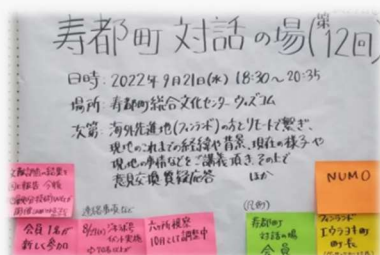 寿都町 対話の場(第12回)
日時：2022年9月21日(水) 18:30〜20:35
場所：寿都町総合文化センター ウィズコム
次第：海外先進地(フィンランド)の方とリモートで繋ぎ、
現地のこれまでの経緯や背景、現在の様子や
現地の事情などをご講義頂き、その上で
意見交換、質疑応答 ほか
会員1名が
新しく参加
六ヶ所視察
10月にて調整中
(凡例)
寿都町
対話の場
会員
NUMO
フィンランド
エウラヨキ町
町長